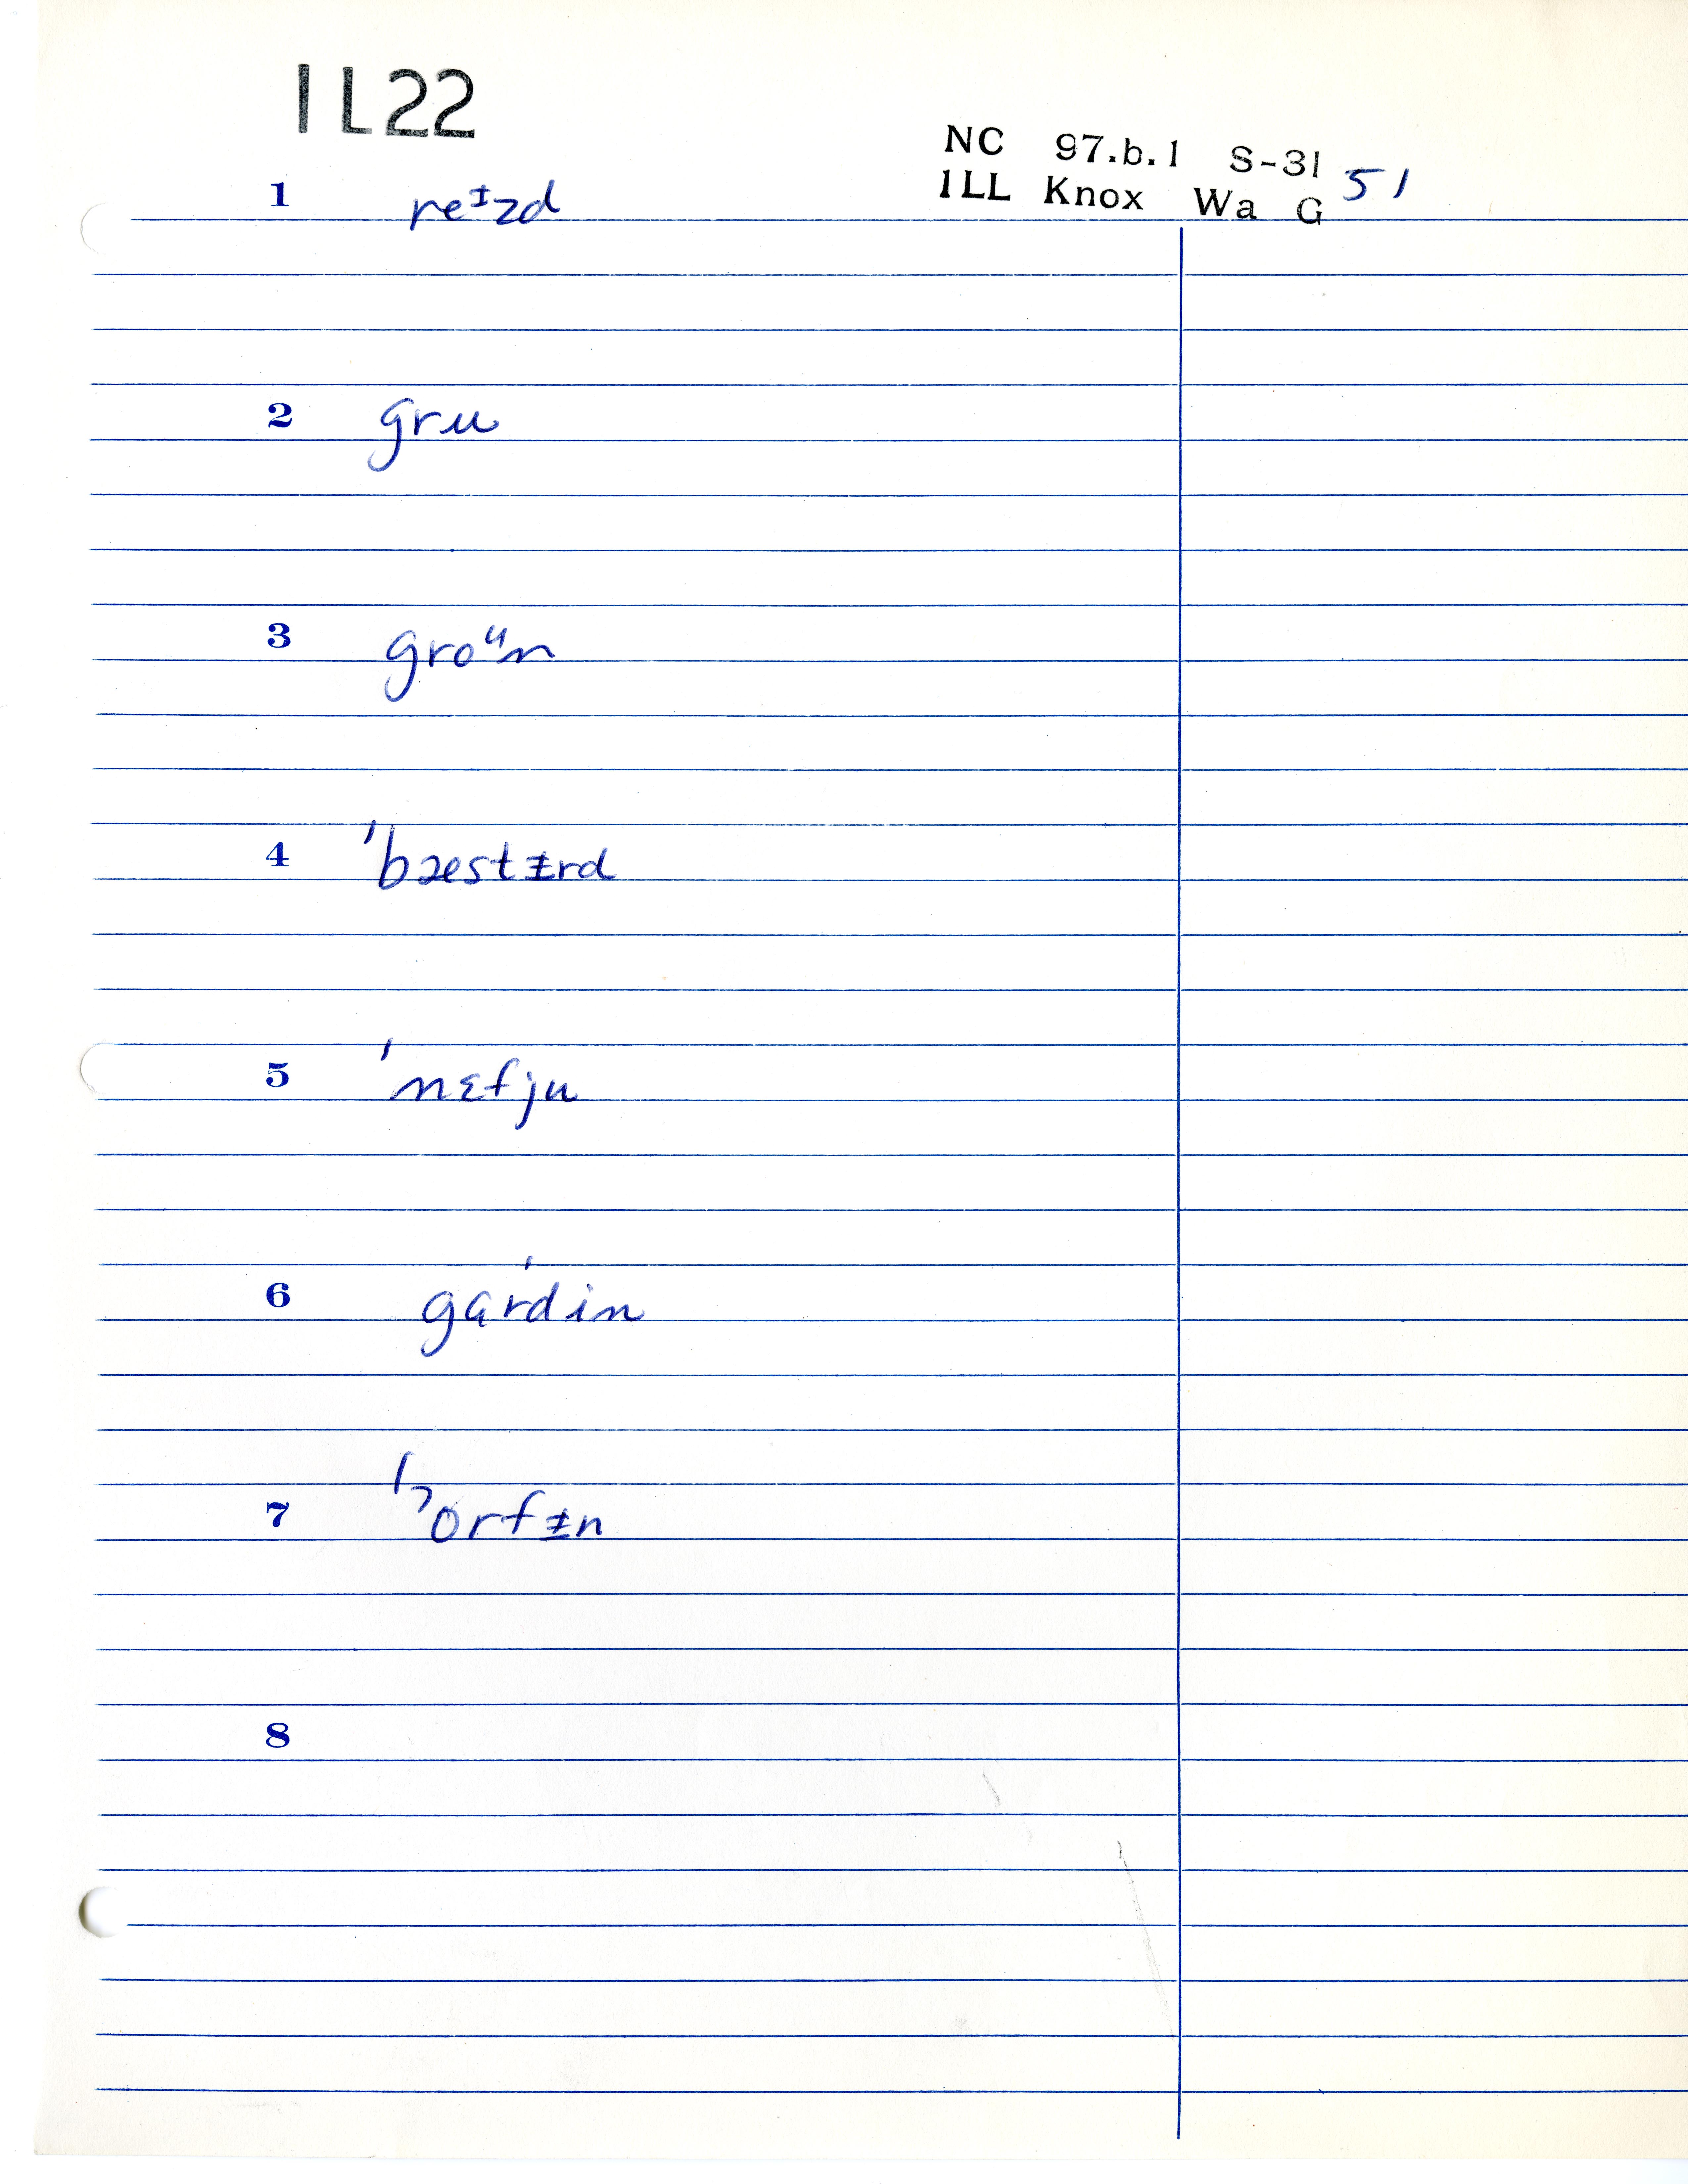 1L22
NC 97.b.1 S-31 51
ILL Knox Wa G
1 reᶦzd
2 gru
3 groᵘn
4 ˈbæstɨrd
5 ˈnɛfju
6 garˈdin
7 ˈʔɔrfɨn
8